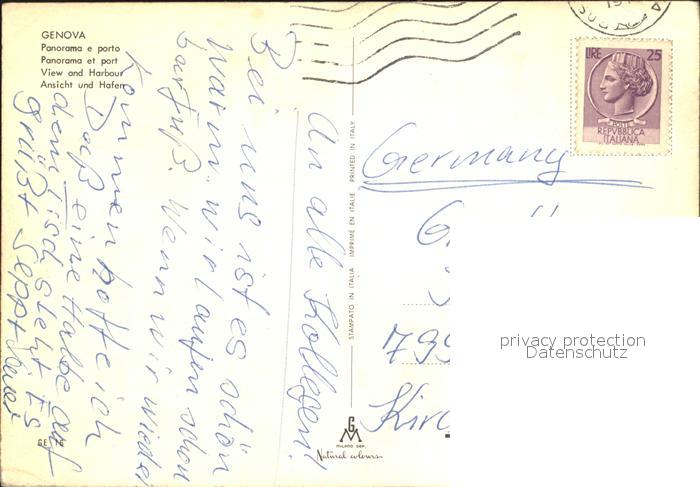 GENOVA
Panorama e porto
Panorama et port
View and Harbour
Ansicht und Hafen
An alle Kollegen!
Bei uns ist es schön
warm. wir laufen schon
barfuß. Wenn wir wieder
kommen hoffe ich
Daß eine Halbe auf
dem Tisch steht. Es
grüßt Sepp
GE 16
STAMPATO IN ITALIA IMPRIMÉ EN ITALIE PRINTED IN ITALY
MILANO DEP.
Natural colours
LIRE 25
POSTE
REPVBBLICA
ITALIANA
Germany
G
799
Kirc
privacy protection
Datenschutz